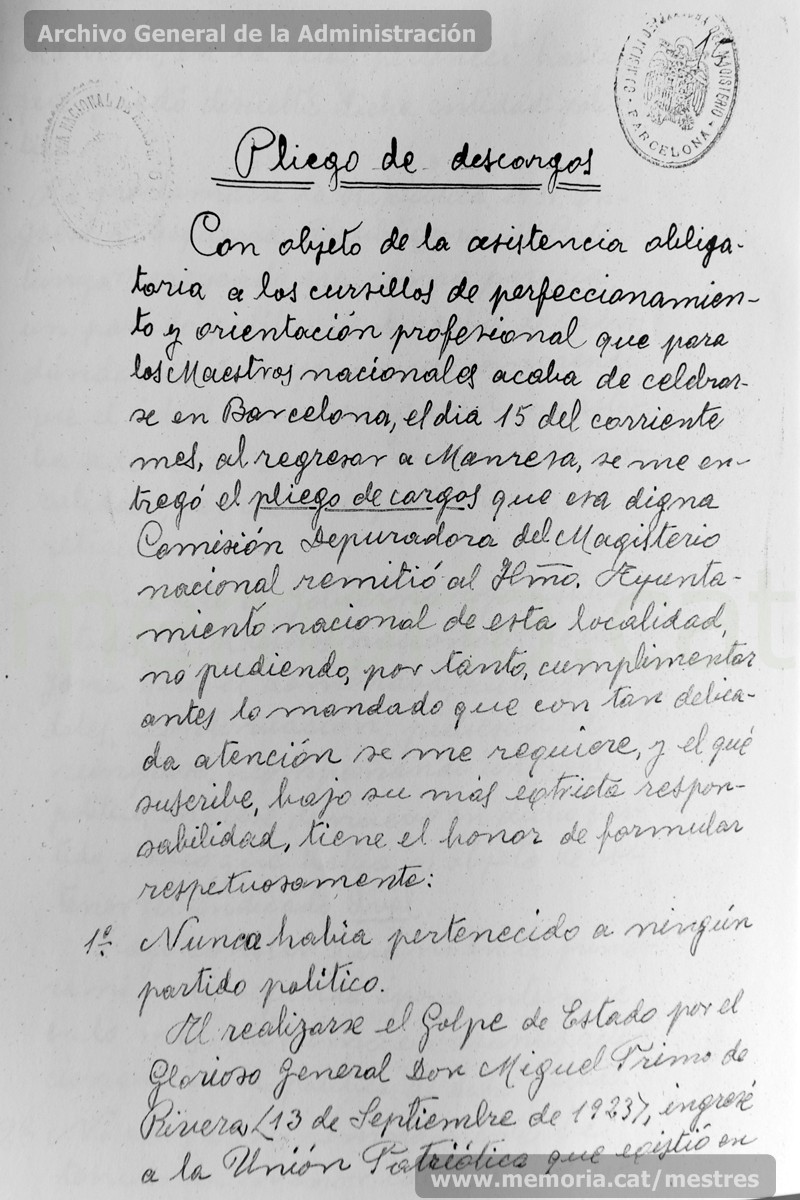 Archivo General de la Administración
BARCELONA
Pliego de descargos
Con objeto de la asistencia obliga-
toria a los cursillos de perfeccionamien-
to y orientación profesional que para
los Maestros nacionales acaba de celebrar-
se en Barcelona, el dia 15 del corriente
mes, al regresar a Manresa, se me en-
tregó el pliego de cargos que esa digna
Comisión Depuradora del Magisterio
nacional remitió al Iltmo. Ayunta-
miento nacional de esta localidad,
no pudiendo, por tanto, cumplimentar
antes lo mandado que con tan delica-
da atención se me requiere, y el qué
suscribe, bajo su más extricta respon-
sabilidad, tiene el honor de formular
respetuosamente:
1º. Nunca había pertenecido a ningún
partido político.
Al realizarse el Golpe de Estado por el
Glorioso General Don Miguel Primo de
Rivera (13 de Septiembre de 1923), ingresé
a la Unión Patriótica que existió en
www.memoria.cat/mestres